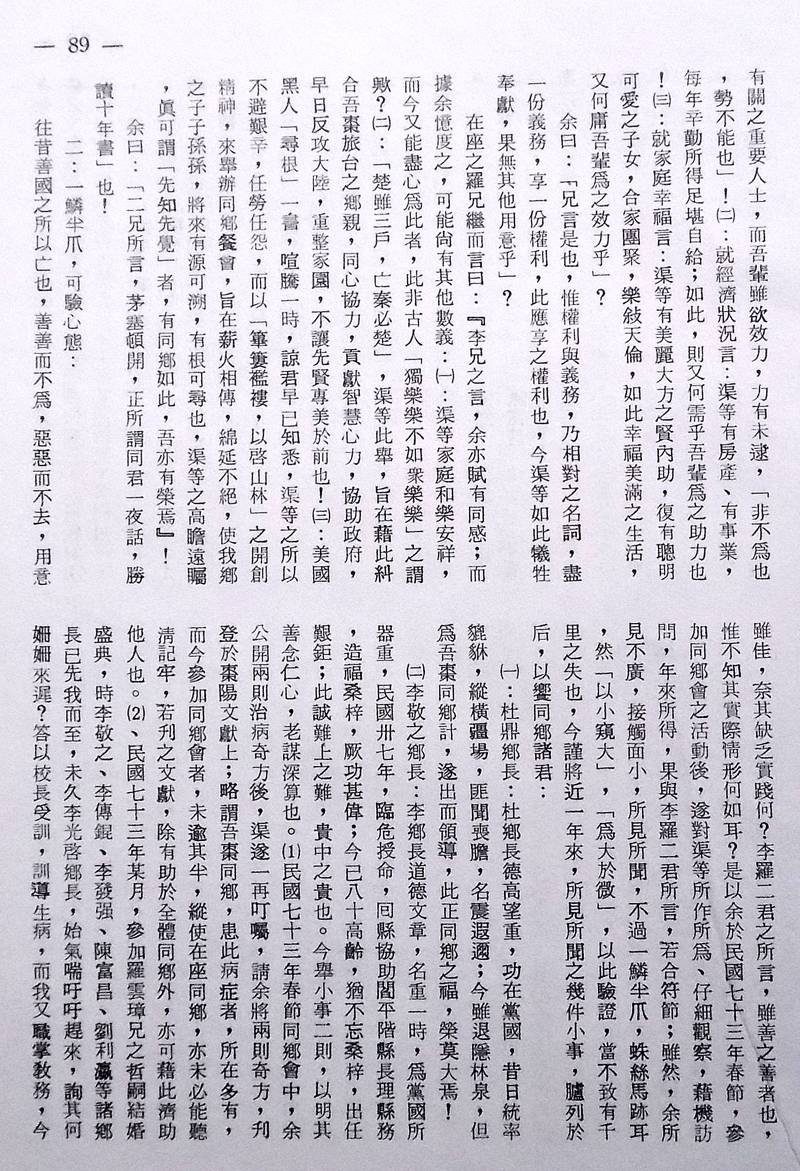 — 89 —
有關之重要人士，而吾輩雖欲效力，力有未逮，「非不爲也
，勢不能也」！㈡：就經濟狀況言：渠等有房產、有事業，
每年辛勤所得足堪自給；如此，則又何需乎吾輩爲之助力也
！㈢：就家庭幸福言：渠等有美麗大方之賢內助，復有聰明
可愛之子女，合家團聚，樂敍天倫，如此幸福美滿之生活，
又何庸吾輩爲之效力乎」？
余曰：「兄言是也，惟權利與義務，乃相對之名詞，盡
一份義務，享一份權利，此應享之權利也，今渠等如此犧牲
奉獻，果無其他用意乎」？
在座之羅兄繼而言曰：『李兄之言，余亦賦有同感；而
據余憶度之，可能尚有其他數義：㈠：渠等家庭和樂安祥，
而今又能盡心爲此者，此非古人「獨樂樂不如衆樂樂」之謂
歟？㈡：「楚雖三戶，亡秦必楚」，渠等此舉，旨在藉此糾
合吾棗旅台之鄉親，同心協力，貢獻智慧心力，協助政府，
早日反攻大陸，重整家園，不讓先賢專美於前也！㈢：美國
黑人「尋根」一書，喧騰一時，諒君早已知悉，渠等之所以
不避艱辛，任勞任怨，而以「篳簍襤褸，以啓山林」之開創
精神，來舉辦同鄉餐會，旨在薪火相傳，綿延不絕，使我鄉
之子子孫孫，將來有源可溯，有根可尋也，渠等之高瞻遠矚
，眞可謂「先知先覺」者，有同鄉如此，吾亦有榮焉』！
余曰：「二兄所言，茅塞頓開，正所謂同君一夜話，勝
讀十年書」也！
二：一鱗半爪，可驗心態：
往昔善國之所以亡也，善善而不爲，惡惡而不去，用意
雖佳，奈其缺乏實踐何？李羅二君之所言，雖善之善者也，
惟不知其實際情形何如耳？是以余於民國七十三年春節，參
加同鄉會之活動後，遂對渠等所作所爲、仔細觀察，藉機訪
問，年來所得，果與李羅二君所言，若合符節；雖然，余所
見不廣，接觸面小，所見所聞，不過一鱗半爪，蛛絲馬跡耳
，然「以小窺大」，「爲大於微」，以此驗證，當不致有千
里之失也，今謹將近一年來，所見所聞之幾件小事，臚列於
后，以饗同鄉諸君：
㈠：杜鼎鄉長：杜鄉長德高望重，功在黨國，昔日統率
貔貅，縱橫疆場，匪聞喪膽，名震遐邇；今雖退隱林泉，但
爲吾棗同鄉計，遂出而領導，此正同鄉之福，榮莫大焉！
㈡李敬之鄉長：李鄉長道德文章，名重一時，爲黨國所
器重，民國卅七年，臨危授命，囘縣協助閻平階縣長理縣務
，造福桑梓，厥功甚偉；今已八十高齡，猶不忘桑梓，出任
艱鉅；此誠難上之難，貴中之貴也。今舉小事二則，以明其
善念仁心，老謀深算也。⑴民國七十三年春節同鄉會中，余
公開兩則治病奇方後，渠遂一再叮囑，請余將兩則奇方，刋
登於棗陽文獻上；略謂吾棗同鄉，患此病症者，所在多有，
而今參加同鄉會者，未逾其半，縱使在座同鄉，亦未必能聽
淸記牢，若刋之文獻，除有助於全體同鄉外，亦可藉此濟助
他人也。⑵、民國七十三年某月，參加羅雲璋兄之哲嗣結婚
盛典，時李敬之、李傳錕、李發强、陳富昌、劉利瀛等諸鄉
長已先我而至，未久李光啓鄉長，始氣喘吁吁趕來，詢其何
姍姍來遲？答以校長受訓，訓導生病，而我又職掌敎務，今